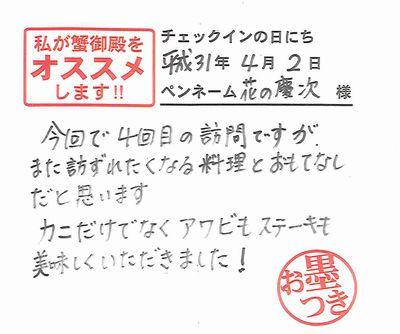 私が蟹御殿を
オススメ
します!!
チェックインの日にち
平成31年4月2日
ペンネーム 花の慶次 様
今回で4回目の訪問ですが
また訪ずれたくなる料理とおもてなし
だと思います
カニだけでなくアワビもステーキも
美味しくいただきました!
お墨
つき